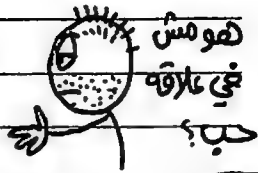 هو مش
في علاقة
حب؟